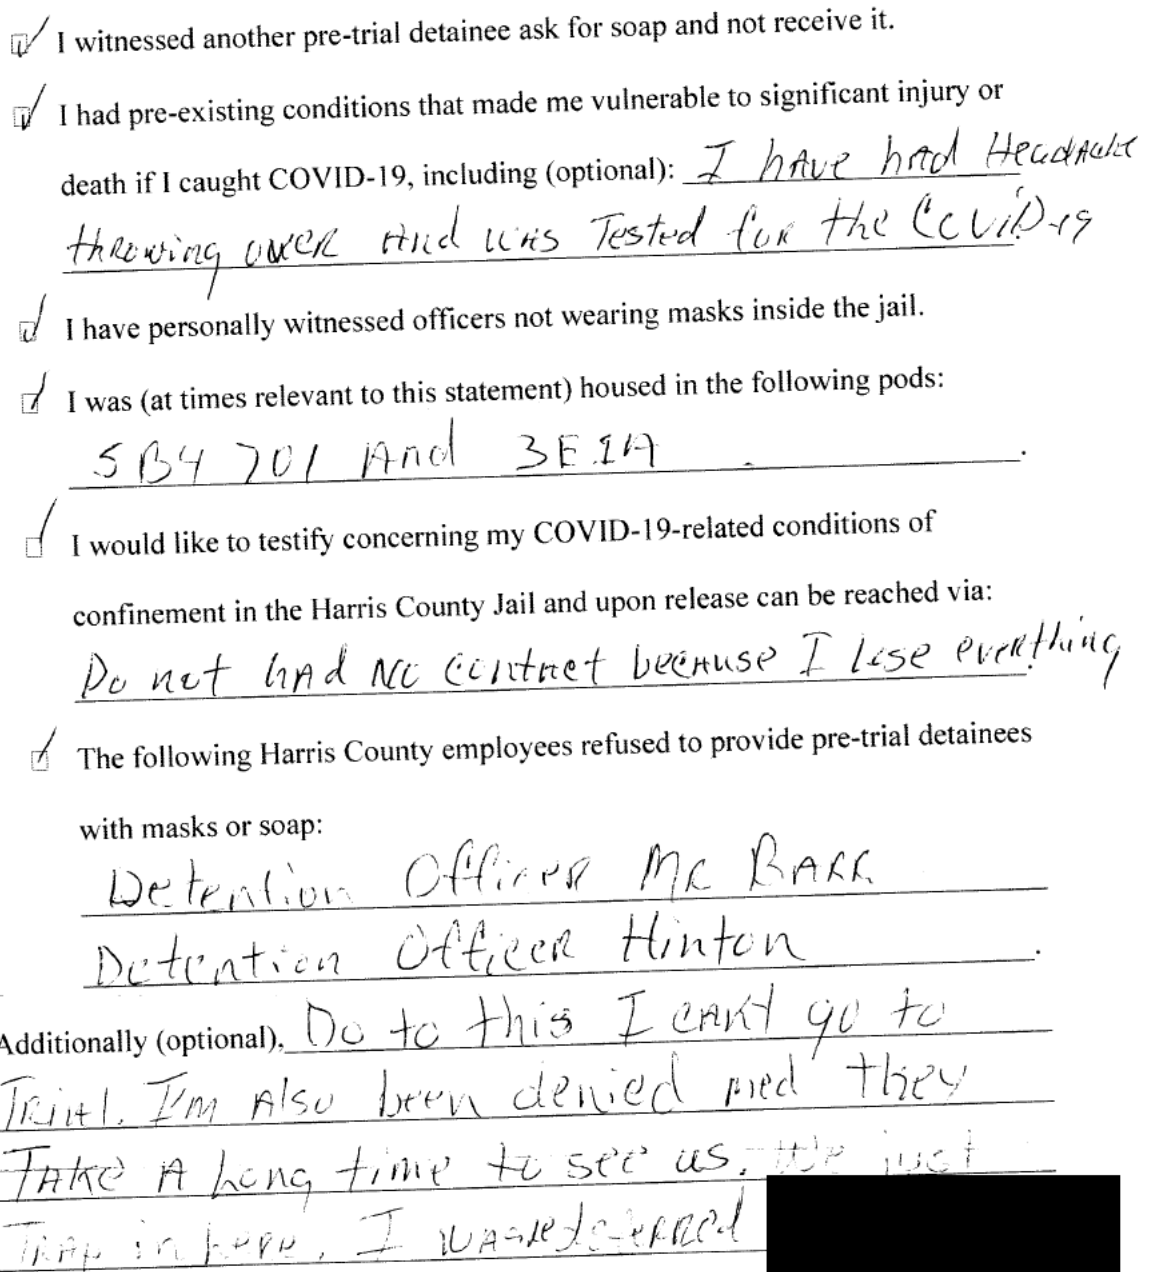 I witnessed another pre-trial detainee ask for soap and not receive it.
I had pre-existing conditions that made me vulnerable to significant injury or
death if I caught COVID-19, including (optional): I have had Headache
throwing over And was Tested for the CoviD-19
I have personally witnessed officers not wearing masks inside the jail.
I was (at times relevant to this statement) housed in the following pods:
5B4 701 And 3E1A .
I would like to testify concerning my COVID-19-related conditions of
confinement in the Harris County Jail and upon release can be reached via:
Do not had No Contact because I lose everthing
The following Harris County employees refused to provide pre-trial detainees
with masks or soap:
Detention Officer Mc BARR
Detention Officer Hinton .
Additionally (optional), Do to this I can't go to
Trial. I'm Also been denied med they
TAKe A Long time to see us. We just
Trap in here. I